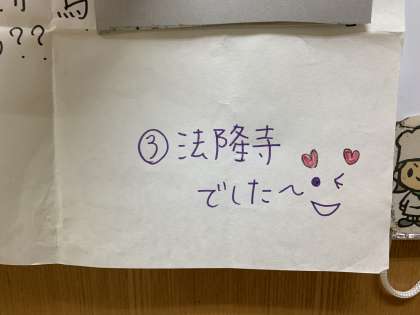 ??
③法隆寺
でした〜